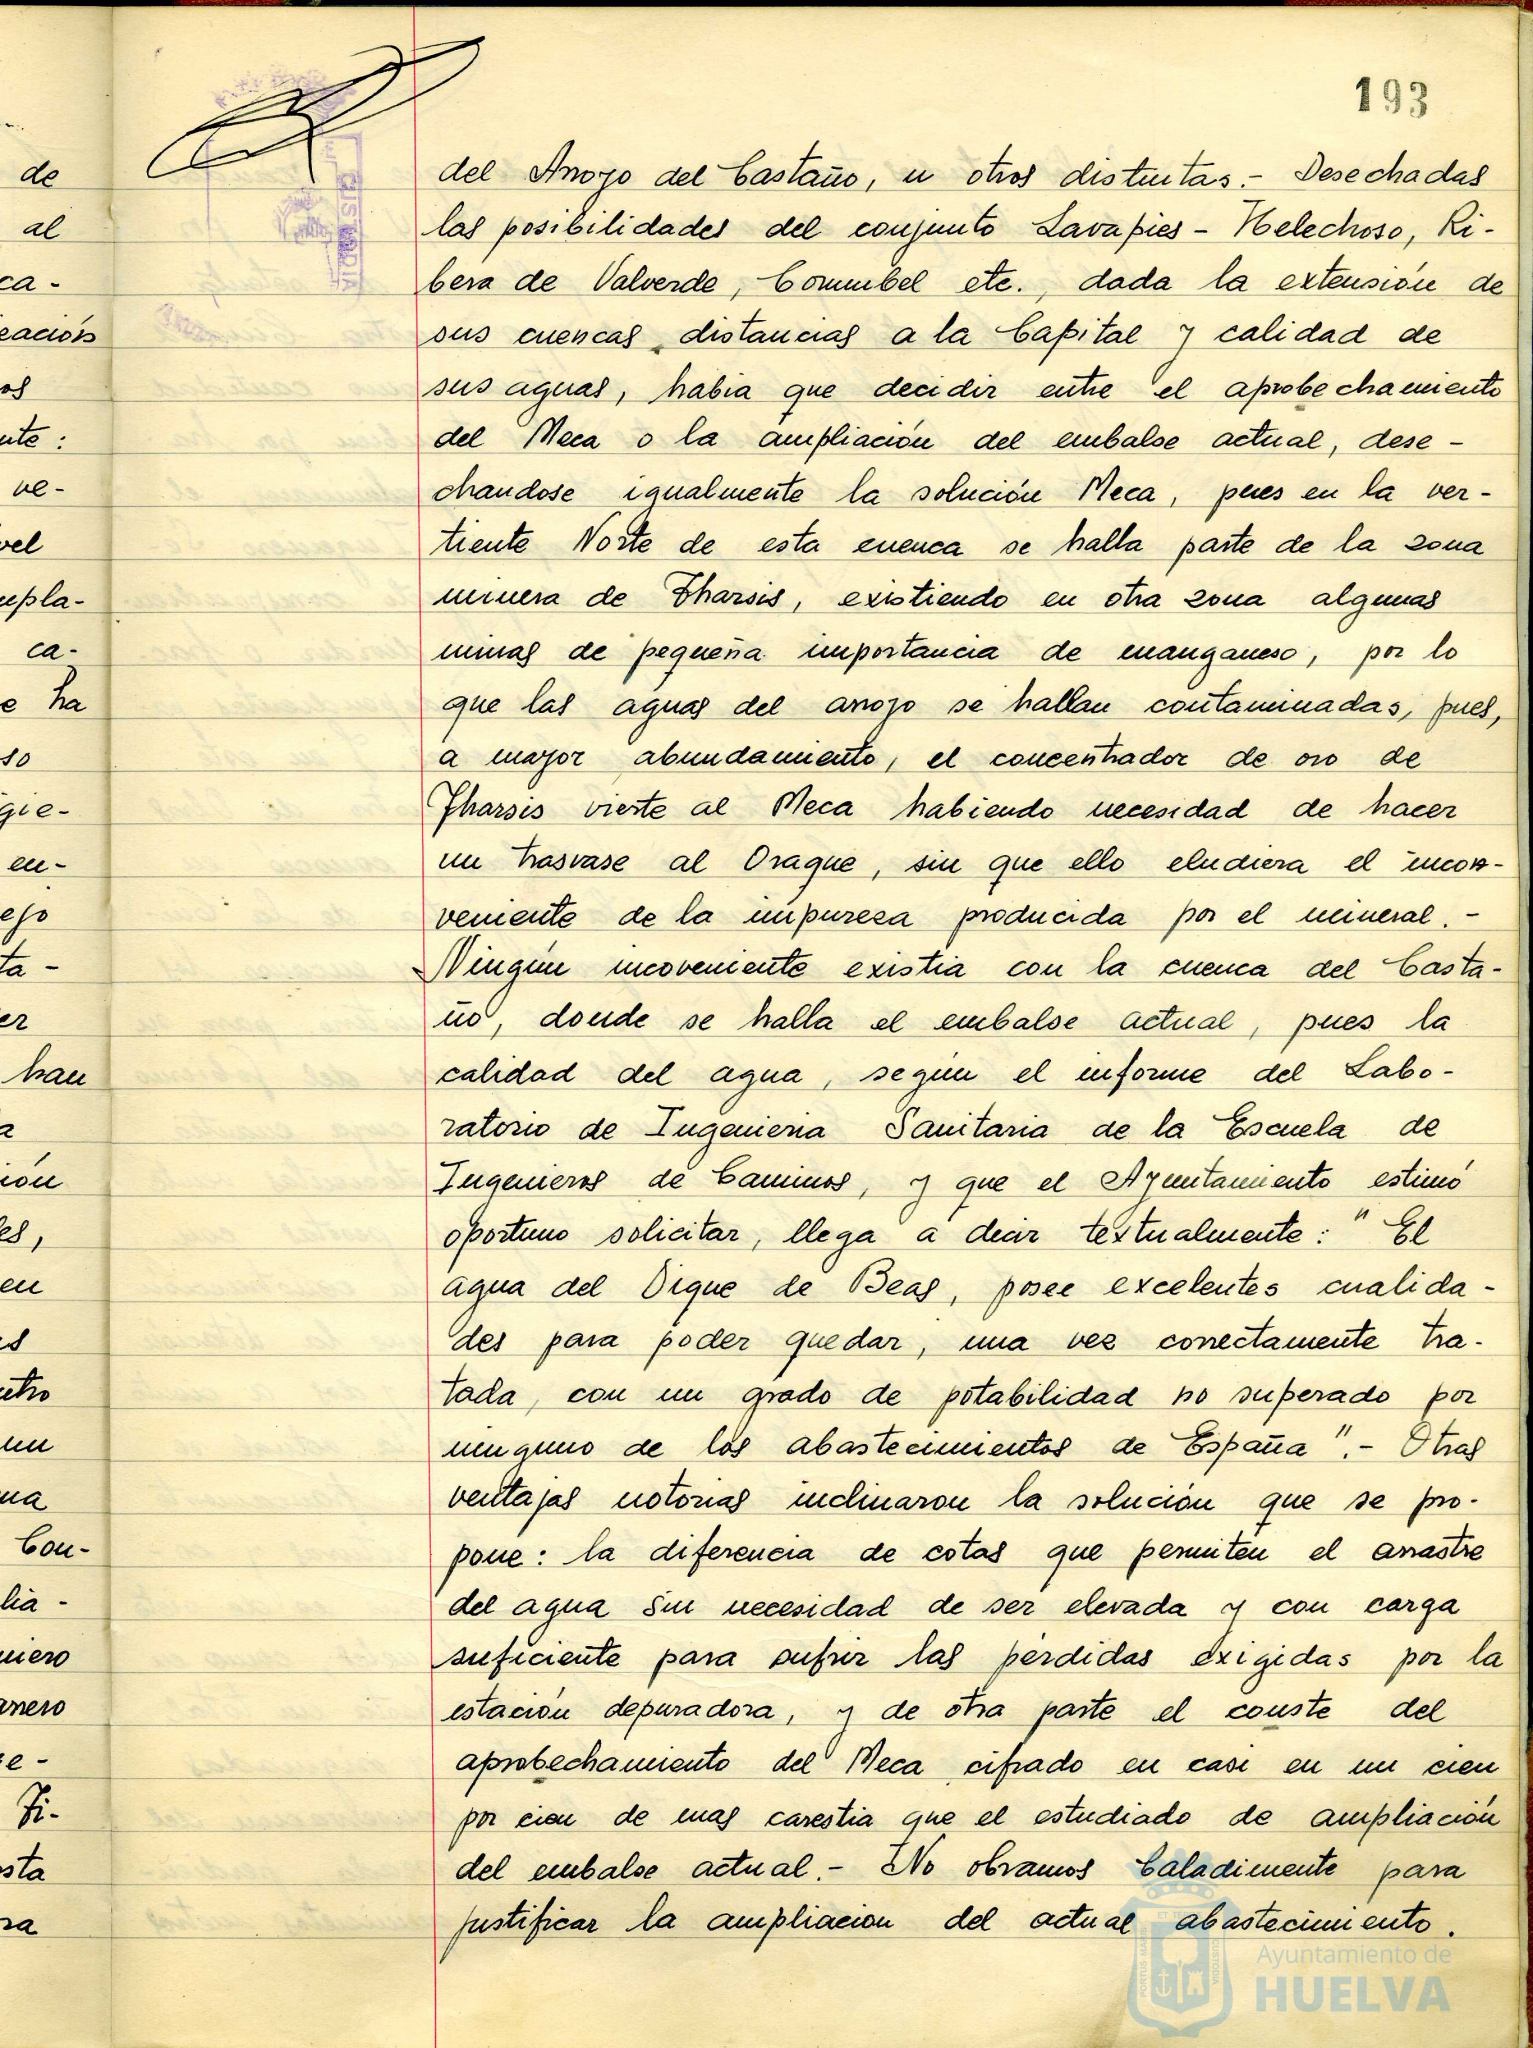 193
del Arroyo del Castaño, u otros distintas.- Desechadas
las posibilidades del conjunto Lavapies - Helechoso, Ri-
bera de Valverde, Corumbel etc., dada la extensión de
sus cuencas, distancias a la Capital y calidad de
sus aguas, habia que decidir entre el aprobechamiento
del Meca o la ampliación del embalse actual, dese-
chandose igualmente la solución Meca, pues en la ver-
tiente Norte de esta cuenca se halla parte de la zona
minera de Tharsis, existiendo en otra zona algunas
minas de pequeña importancia de manganeso, por lo
que las aguas del arroyo se hallan contaminadas, pues,
a mayor abundamiento, el concentrador de oro de
Tharsis vierte al Meca habiendo necesidad de hacer
un trasvase al Oraque, sin que ello eludiera el incon-
veniente de la impureza producida por el mineral.-
Ningún incoveniente existia con la cuenca del Casta-
ño, donde se halla el embalse actual, pues la
calidad del agua, según el informe del Labo-
ratorio de Ingenieria Sanitaria de la Escuela de
Ingenieros de Caminos, y que el Ayuntamiento estimó
oportuno solicitar, llega a decir textualmente: " El
agua del Dique de Beas, posee excelentes cualida-
des para poder quedar, una vez correctamente tra-
tada, con un grado de potabilidad no superado por
ninguno de los abastecimientos de España".- Otras
ventajas notorias inclinaron la solución que se pro-
pone: la diferencia de cotas que permiten el arrastre
del agua sin necesidad de ser elevada y con carga
suficiente para sufrir las pérdidas exigidas por la
estación depuradora, y de otra parte el couste del
aprobechamiento del Meca cifrado en casi en un cien
por cien de mas carestia que el estudiado de ampliación
del embalse actual.- No obramos baladimente para
justificar la ampliacion del actual abastecimiento.
de
al
ca-
eación
os
nte:
ve-
vel
mpla-
ca-
e ha
so
gie-
en-
ejo
ta-
er
han
a
ión
es,
en
ntro
un
na
Con-
lia-
niero
e-
Ti-
sta
ra
Ayuntamiento de
HUELVA